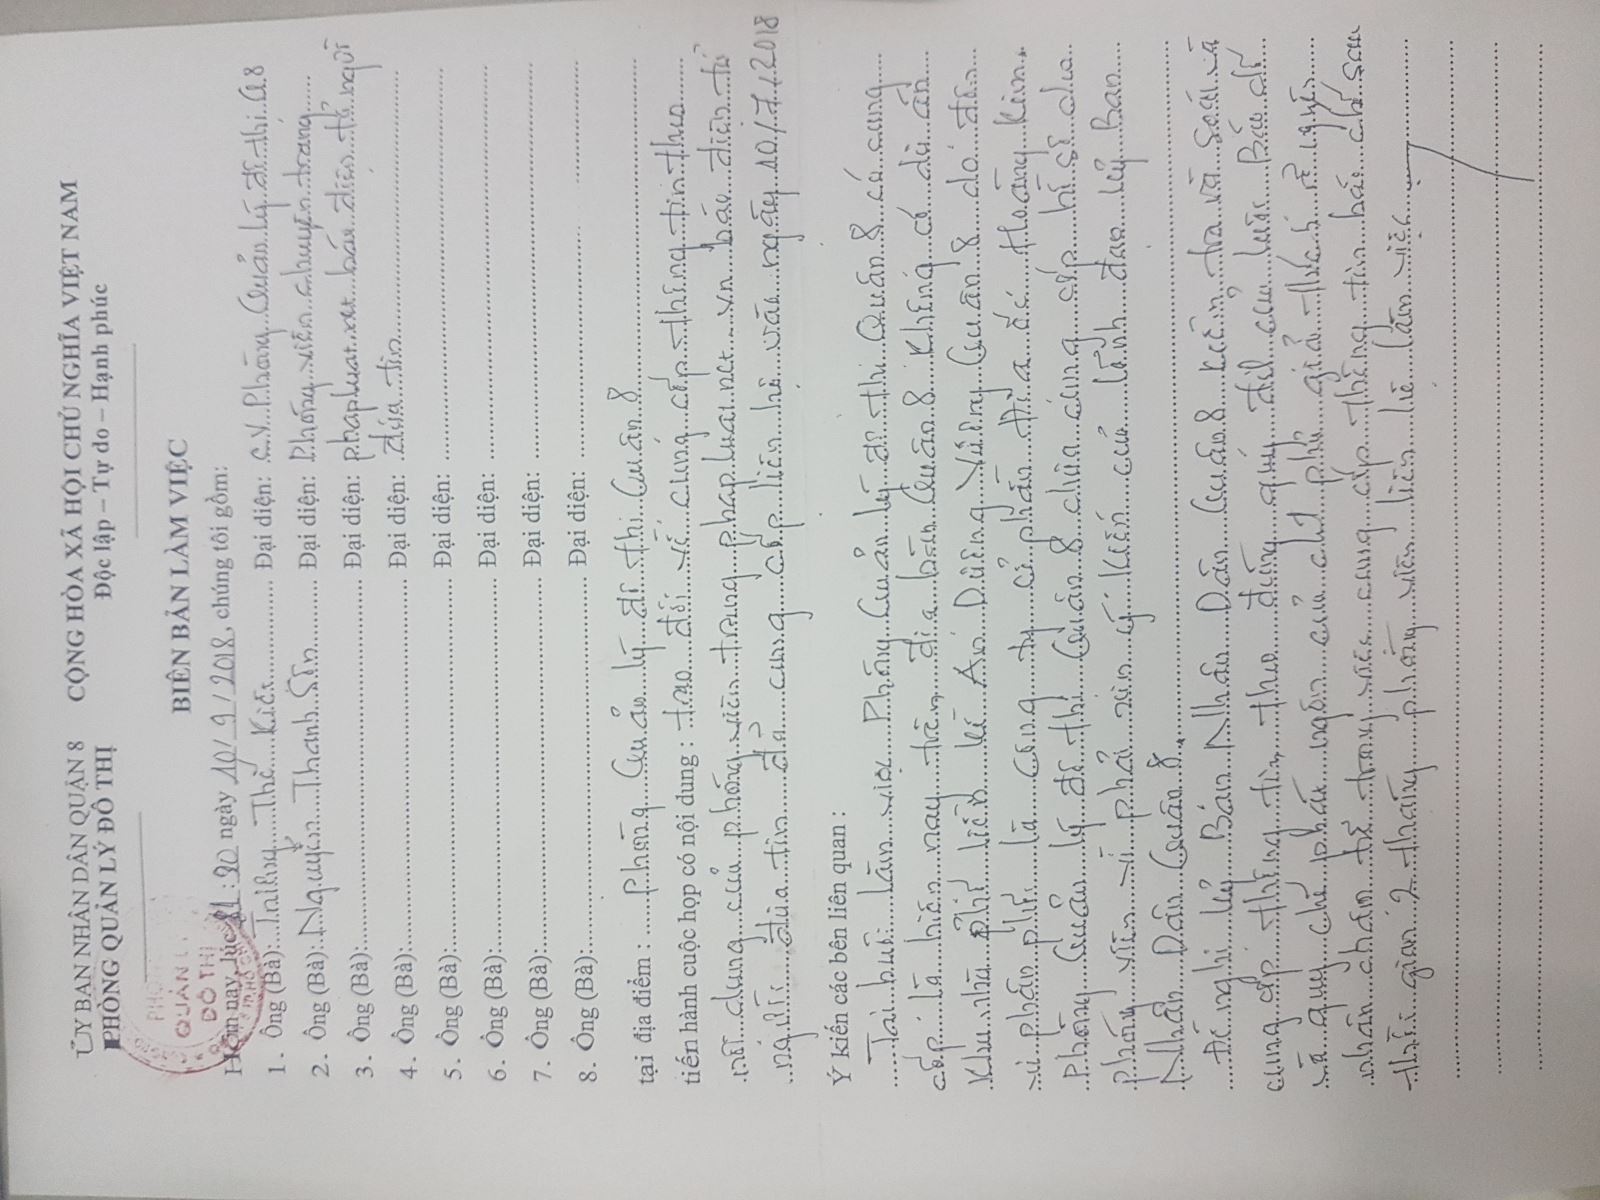 ỦY BAN NHÂN DÂN QUẬN 8
PHÒNG QUẢN LÝ ĐÔ THỊ
CỘNG HÒA XÃ HỘI CHỦ NGHĨA VIỆT NAM
Độc lập – Tự do – Hạnh phúc
QUẢN LÝ
ĐÔ THỊ
BIÊN BẢN LÀM VIỆC
Hôm nay, lúc ngày 10/9/2018, chúng tôi gồm:
1. Ông (Bà): Thế Kiệt Đại diện: C.V Phòng Quản lý đô thị Q8
2. Ông (Bà): Nguyễn Thanh Sơn Đại diện: Phóng viên chuyên trang
3. Ông (Bà): Đại diện: phapluat.net báo điện tử người
4. Ông (Bà): Đại diện: đưa tin
5. Ông (Bà): Đại diện:
6. Ông (Bà): Đại diện:
7. Ông (Bà): Đại diện:
8. Ông (Bà): Đại diện:
tại địa điểm : phòng Quản lý đô thị Quận 8
tiến hành cuộc họp có nội dung : trao đổi về cung cấp thông tin theo
nội dung của phóng viên trang phapluat.net.vn báo điện tử
người đưa tin đã cung cấp liên hệ vào ngày 10/7/2018
Ý kiến các bên liên quan :
Tại buổi làm việc Phòng Quản lý đô thị Quận 8 có cung
cấp là hiện nay trên địa bàn Quận 8 không có dự án
Khu nhà phố liền kề An Dương Vương Quận 8 do đơn
vị phân phối là công ty cổ phần địa ốc Hoàng Kim
Phòng Quản lý đô thị Quận 8 chưa cung cấp hồ sơ cho
phóng viên vì phải xin ý kiến của lãnh đạo Ủy Ban
Nhân Dân Quận 8.
Đề nghị Uỷ Ban Nhân Dân Quận 8 kiểm tra rà soát và
cung cấp thông tin theo đúng quy định của luật Báo chí
và quy chế phát ngôn của chính phủ giải thích rõ
nhân thân thể thay việc cung cấp thông tin báo chí sau
thời gian 2 tháng phóng viên liên hệ làm việc